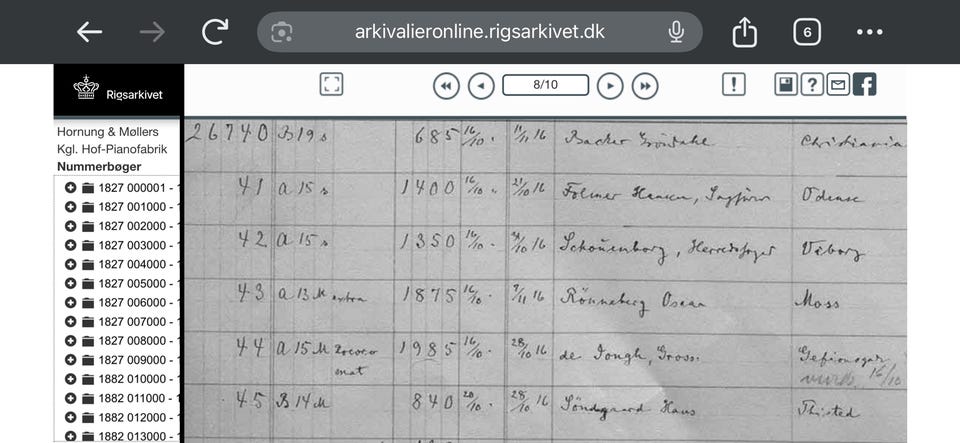 arkivalieronline.rigsarkivet.dk
6
8/10
Rigsarkivet
Hornung & Møllers
Kgl. Hof-Pianofabrik
Nummerbøger
1827 000001 - 1
1827 001000 - 1
1827 002000 - 1
1827 003000 - 1
1827 004000 - 1
1827 005000 - 1
1827 006000 - 1
1827 007000 - 1
1827 008000 - 1
1827 009000 - 1
1882 010000 - 1
1882 011000 - 1
1882 012000 - 1
1882 013000 - 1
26740 B 19 s 685 16/10 . 11/11 16 Backer Gröndahl Christiania
41 A 15 s 1400 16/10 " 21/10 16 Folmer Hansen, Odense
42 A 15 s 1350 16/10 . /10 16 Schouenborg, Herredsfoged Viborg
43 A 13 M extra 1875 16/10 . 7/11 16 Rönneberg Oscar Moss
44 A 15 M 1985 16/10 . 28/10 16 de Jongh, Gross.
mat 16/10
45 B 14 M 840 20/10 . 28/10 16 Söndergaard Hans Thisted